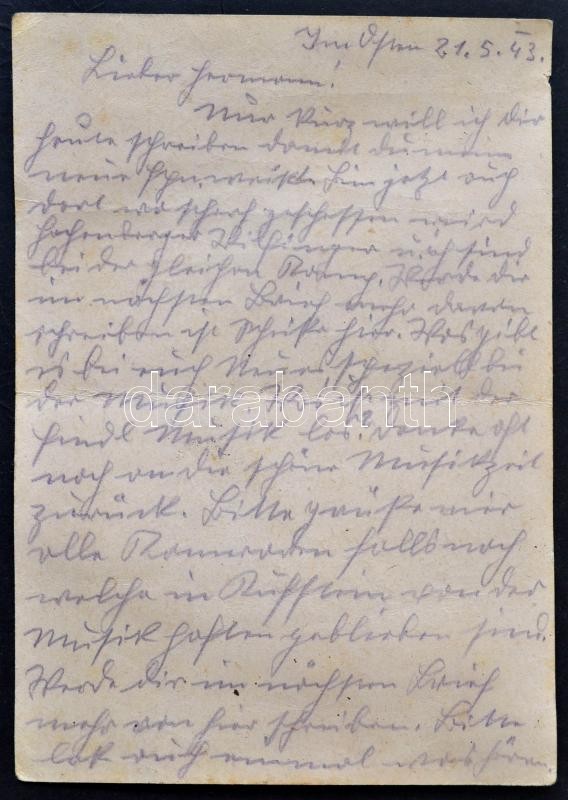 Im Osten 21.5.43.
Lieber Hermann!
Nur kurz will ich dir
heute schreiben damit du meine
neue Fpn. weißt. Bin jetzt auch
dort wo scharf geschossen wird
Hochenberger Wilfinger u. ich sind
bei der gleichen Komp. Werde dir
im nächsten Brief mehr davon
schreiben ist hier. Was gibt
es bei euch Neues speziell bei
der Musik. der
Musik los? Denke oft
noch an die schöne Musikzeit
zurück. Bitte grüße mir
alle Kameraden falls noch
welche in Kufstein von der
Musik haften geblieben sind.
Werde dir im nächsten Brief
mehr von hier schreiben. Bitte
laß auch einmal was hören.
darabanth